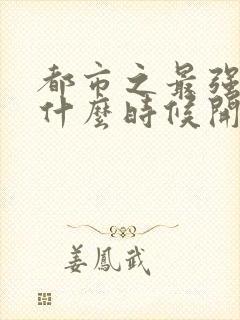 都市之最强
什麼時候開
姜鳳武